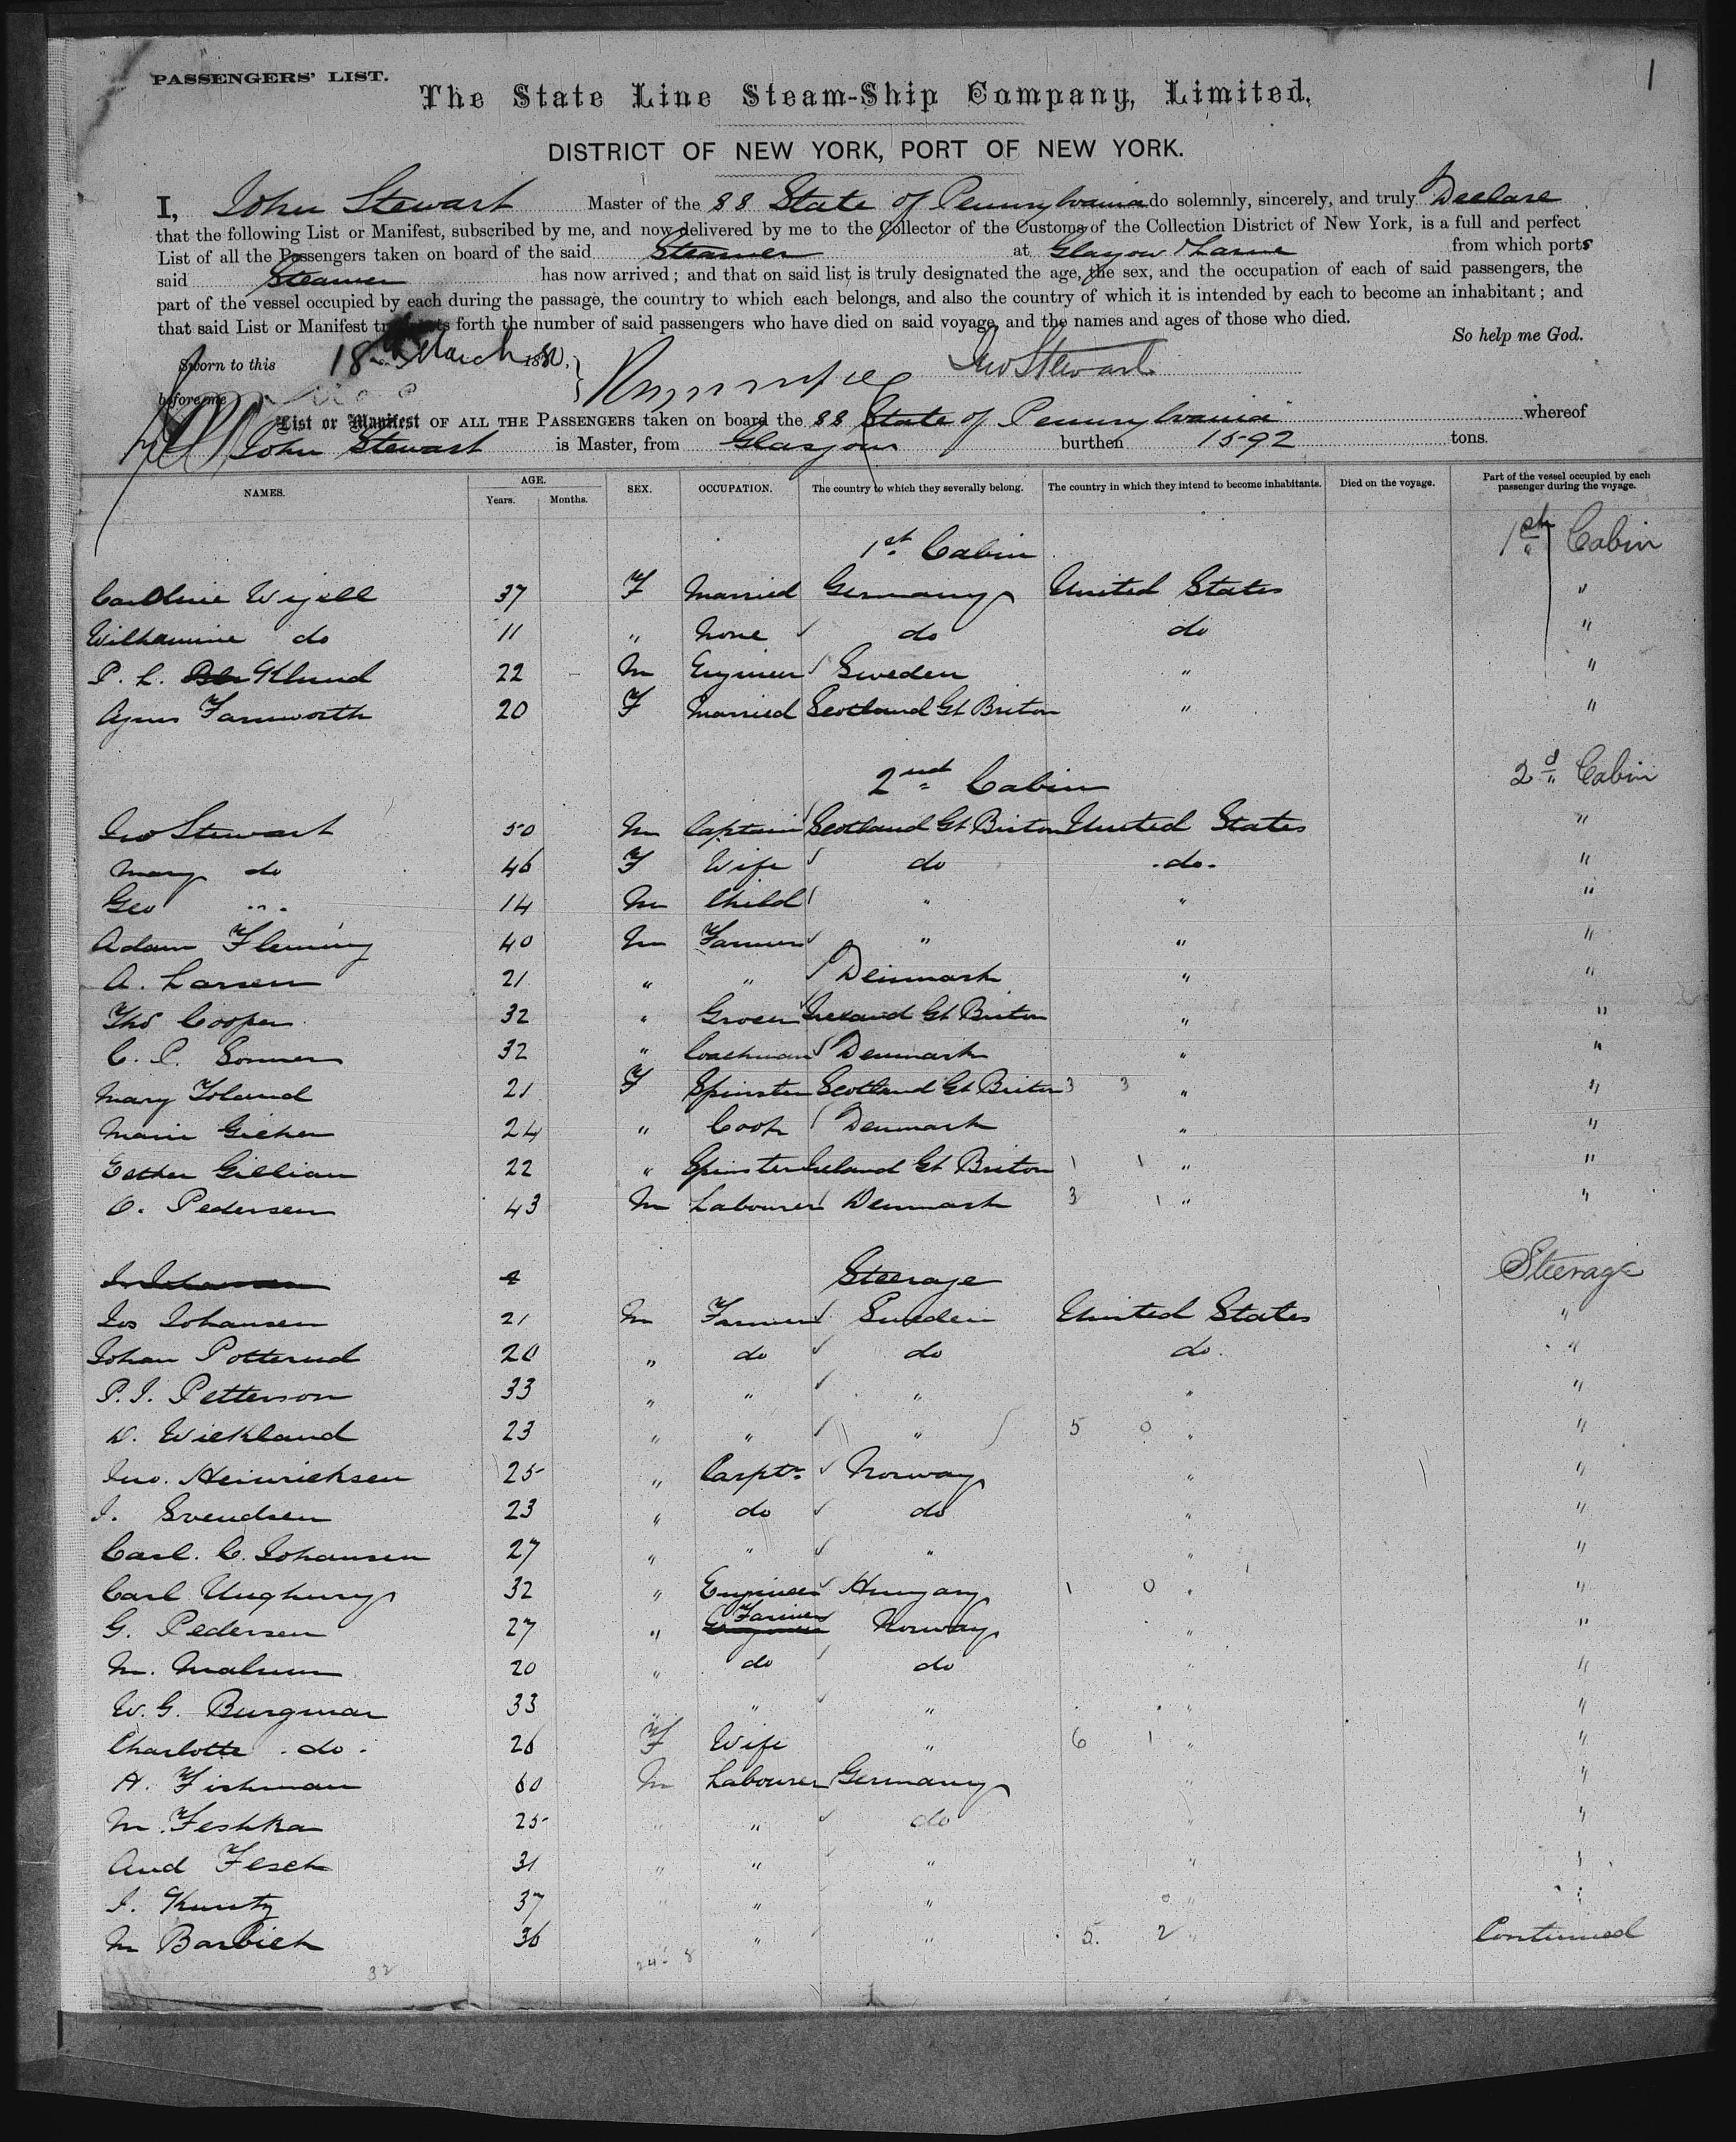 PASSENGERS' LIST.
1
The State Line Steam-Ship Company, Limited,
DISTRICT OF NEW YORK, PORT OF NEW YORK.
I, John Stewart Master of the SS State of Pennsylvania do solemnly, sincerely, and truly Declare
that the following List or Manifest, subscribed by me, and now delivered by me to the Collector of the Customs of the Collection District of New York, is a full and perfect
List of all the Passengers taken on board of the said Steamer at Glasgow & Larne from which ports
said Steamer has now arrived; and that on said list is truly designated the age, the sex, and the occupation of each of said passengers, the
part of the vessel occupied by each during the passage, the country to which each belongs, and also the country of which it is intended by each to become an inhabitant; and
that said List or Manifest truly sets forth the number of said passengers who have died on said voyage, and the names and ages of those who died.
So help me God.
Sworn to this 18th March 1880, Jno Stewart
before me
List or Manifest OF ALL THE PASSENGERS taken on board the SS State of Pennsylvania whereof
John Stewart is Master, from Glasgow burthen 1592 tons.
NAMES. AGE. Years. Months. SEX. OCCUPATION. The country to which they severally belong. The country in which they intend to become inhabitants. Died on the voyage. Part of the vessel occupied by each passenger during the voyage.
1st Cabin 1st Cabin
Caroline Wyell 37 F Married Germany United States "
Wilhamine do 11 " None do do "
P. L. Eklund 22 M Engineer Sweden " "
Agnes Farnworth 20 F Married Scotland Gt Briton " "
2nd Cabin 2d Cabin
Jno Stewart 50 M Captain Scotland Gt Briton United States "
Mary do 46 F Wife do do "
Geo " 14 M Child " " "
Adam Fleming 40 M Farmer " " "
A. Larsen 21 " " Denmark " "
Thos Cooper 32 " Grocer Ireland Gt Briton " "
C. P. Sonnen 32 " Coachman Denmark " "
Mary Toland 21 F Spinster Scotland Gt Briton 3 3 " "
Marie Giehen 24 " Cook Denmark " "
Esther Gillian 22 " Spinster Ireland Gt Briton 1 1 " "
O. Pedersen 43 M Labourer Denmark 3 1 " "
Steerage Steerage
Jos Johansen 21 M Farmer Sweden United States "
Johan Potterud 20 " do do do "
P. J. Petterson 33 " " " " "
D. Wickland 23 " " " 5 0 " "
Jno. Heinrichsen 25 " Carptr Norway " "
J. Svendsen 23 " do do " "
Carl. C. Johansen 27 " " " " "
Carl Unghurys 32 " Engineer Hungary 1 0 " "
G. Pedersen 27 " Farmer Norway " "
M. Malmm 20 " do do " "
W. G. Burgman 33 " " " " "
Charlotte do 26 F Wife " 6 1 " "
H. Fishman 60 M Labourer Germany " "
M. Feshka 25 " " do " "
Aud Fesch 31 " " " " "
J. Kuntz 37 " " " 0 " "
M Barbich 36 " " 5. 2 " Continued
32 24 8